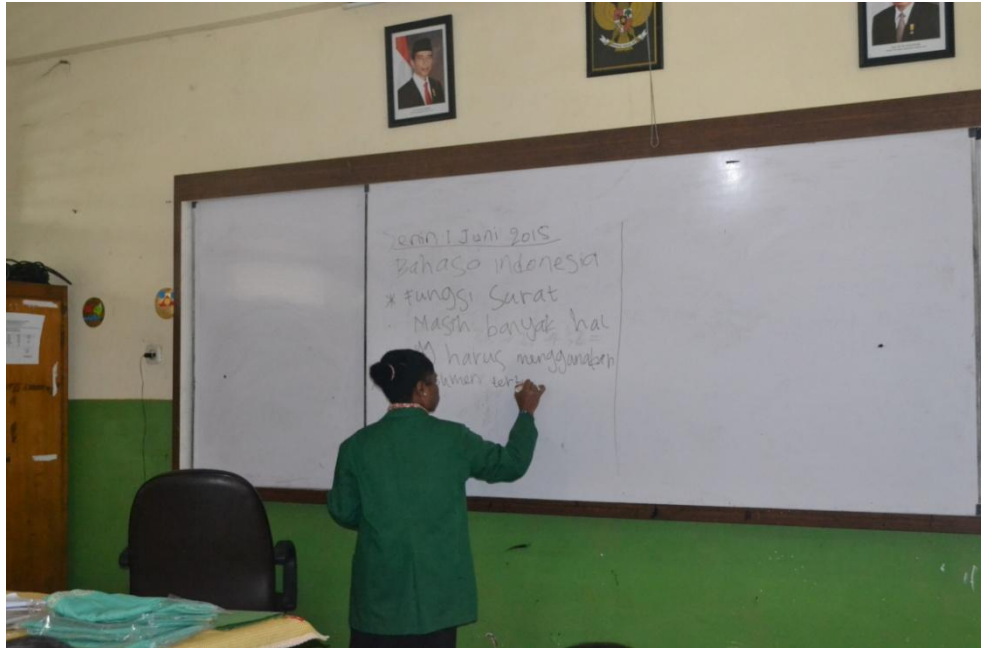 Senin, 1 Juni 2015
Bahasa indonesia
* Fungsi Surat
Masih banyak hal
harus menggunakan